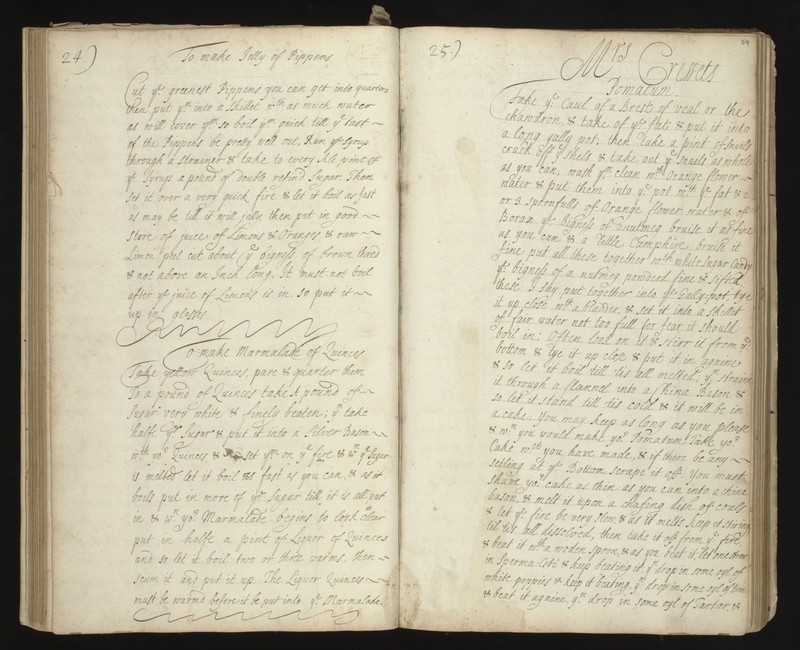 24)
To make Jelly of Pippens
Cut ye greenest Pippens you can get into quarters
then put ym into a skillet wth as much water
as will cover ym so boil ym quick till ye tast
of the Pippens be pretty well out, Run ye Syrup
through a strainer & take to every Ale pint of
ye Syrup a pound of double refind Sugar. Then
set it over a very quick fire & let it boil as fast
as may be till it will jelly, then put in good
store of juice of Limons & Oranges & raw
Limon peel cut about ye bigness of brown thred
& not above an Inch long. It must not boil
after ye juice of Limons is in. so put it
up in glasses
To make Marmalade of Quinces
Take yellow Quinces, pare & quarter them
To a pound of Quinces take A pound of
Sugar very white & finely beaten; yn take
halfe yr Sugar & put it into a Silver Bason
wth yo Quinces & set ym on ye fire & wn ye Sugar
is melted let it boil as fast as you can, & as it
boils put in more of yr Sugar till it is all put
in & wn yor Marmalade begins to look clear
put in halfe a pint of Liquor of Quinces
and so let it boil two or three warms, then
scum it and put it up. The Liquor Quinces
must be warmd before it be put into ye Marmalade.
25.)
Mrs Crewets
Pomatum.
Take ye Caul of a Brest of veal or the
chawdron, & take of ye fatt & put it into
a long gally pot; then take a pint of Snails
crack off ye shels & take out ye Snails as whole
as you can, wash ym clean wth Orange flower
water & put them into ye pot wth ye fat & 2
or 3 spoonfulls of Orange flower water & of
Borax ye bigness of a nutmeg bruise it as fine
as you can & a little Camphire bruise it
fine put all these together wth white Sugar Candy
ye bigness of a nutmeg powdred fine & sifted
these I say put together into ye Gally-pot tye
it up close wth a bladder, & set it into a skillet
of fair water not too full for fear it should
boil in; Often look on it & scinr it from ye
bottom & tye it up close & put it in againe
& so let it boil till tis all melted, yn straine
it through a flannel into a China Bason &
so let it stand till tis cold & it will be in
a cake: You may keep as long as you please
& wn you would make yor Pomatum Take yor
Cake wch you have made, & if there be any
setling at ye Bottom scrape it off. You must
shave yor cake as thin as you can into a china
bason & melt it upon a chafing dish of couls
& let ye fire be very slow & as it melts keep it stiring
til tis all dissolved, then take it off from ye fire
& beat it wth a woden spoon, & as you beat it let one strew
in Sperma-Ceti & keep beating it yn drop in some oyl of
white poppies & keep it beating, yn drop in some oyl of
& beat it againe, yn drop in some oyl of Tartar, &